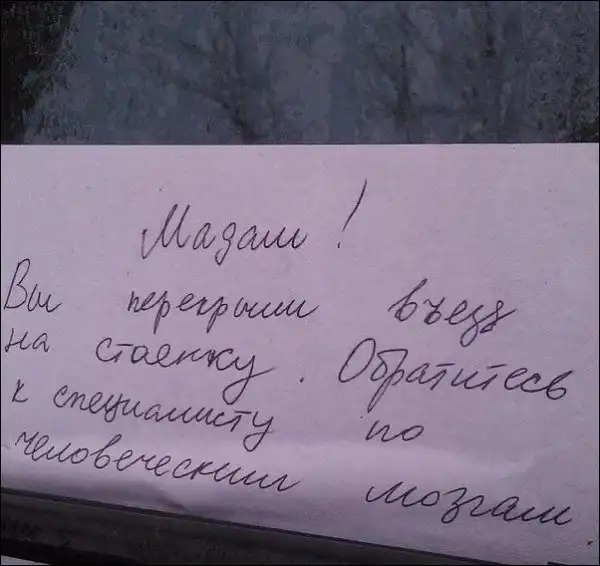 Мадам!
Вы перекрыли въезд
на стоянку. Обратитесь
к специалисту по
человеческим мозгам